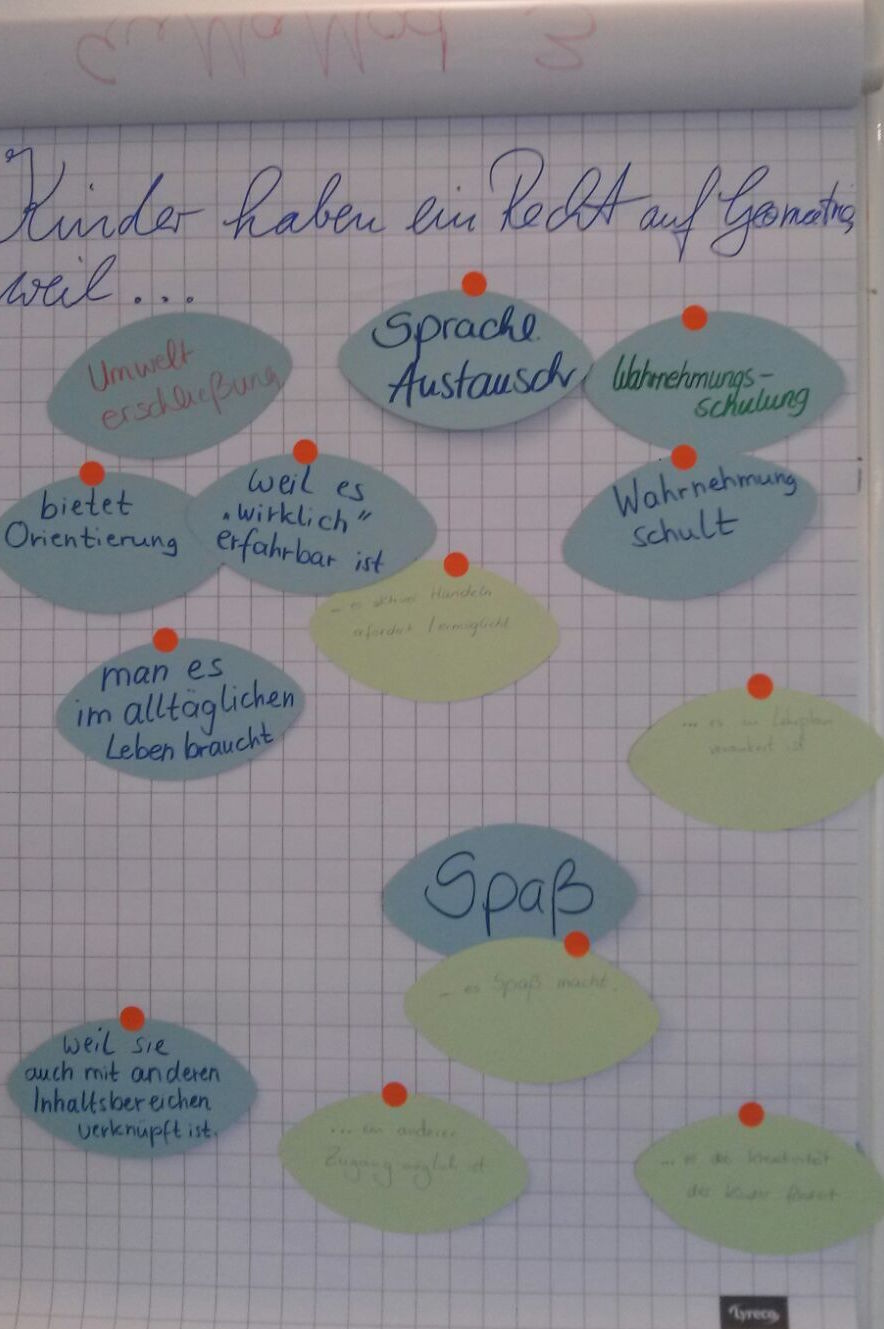 Kinder haben ein Recht auf Geometrie,
weil ...
Umwelt
erschließung
Sprache
Austausch
Wahrnehmungs-
schulung
bietet
Orientierung
weil es
„wirklich“
erfahrbar ist
Wahrnehmung
schult
... es aktives Handeln
erfordert / ermöglicht
man es
im alltäglichen
Leben braucht
... es im Lehrplan
verankert ist
Spaß
... es Spaß macht.
weil sie
auch mit anderen
Inhaltsbereichen
verknüpft ist.
... ein anderer
Zugang möglich ist
... es die Kreativität
der Kinder fördert
Lyreco